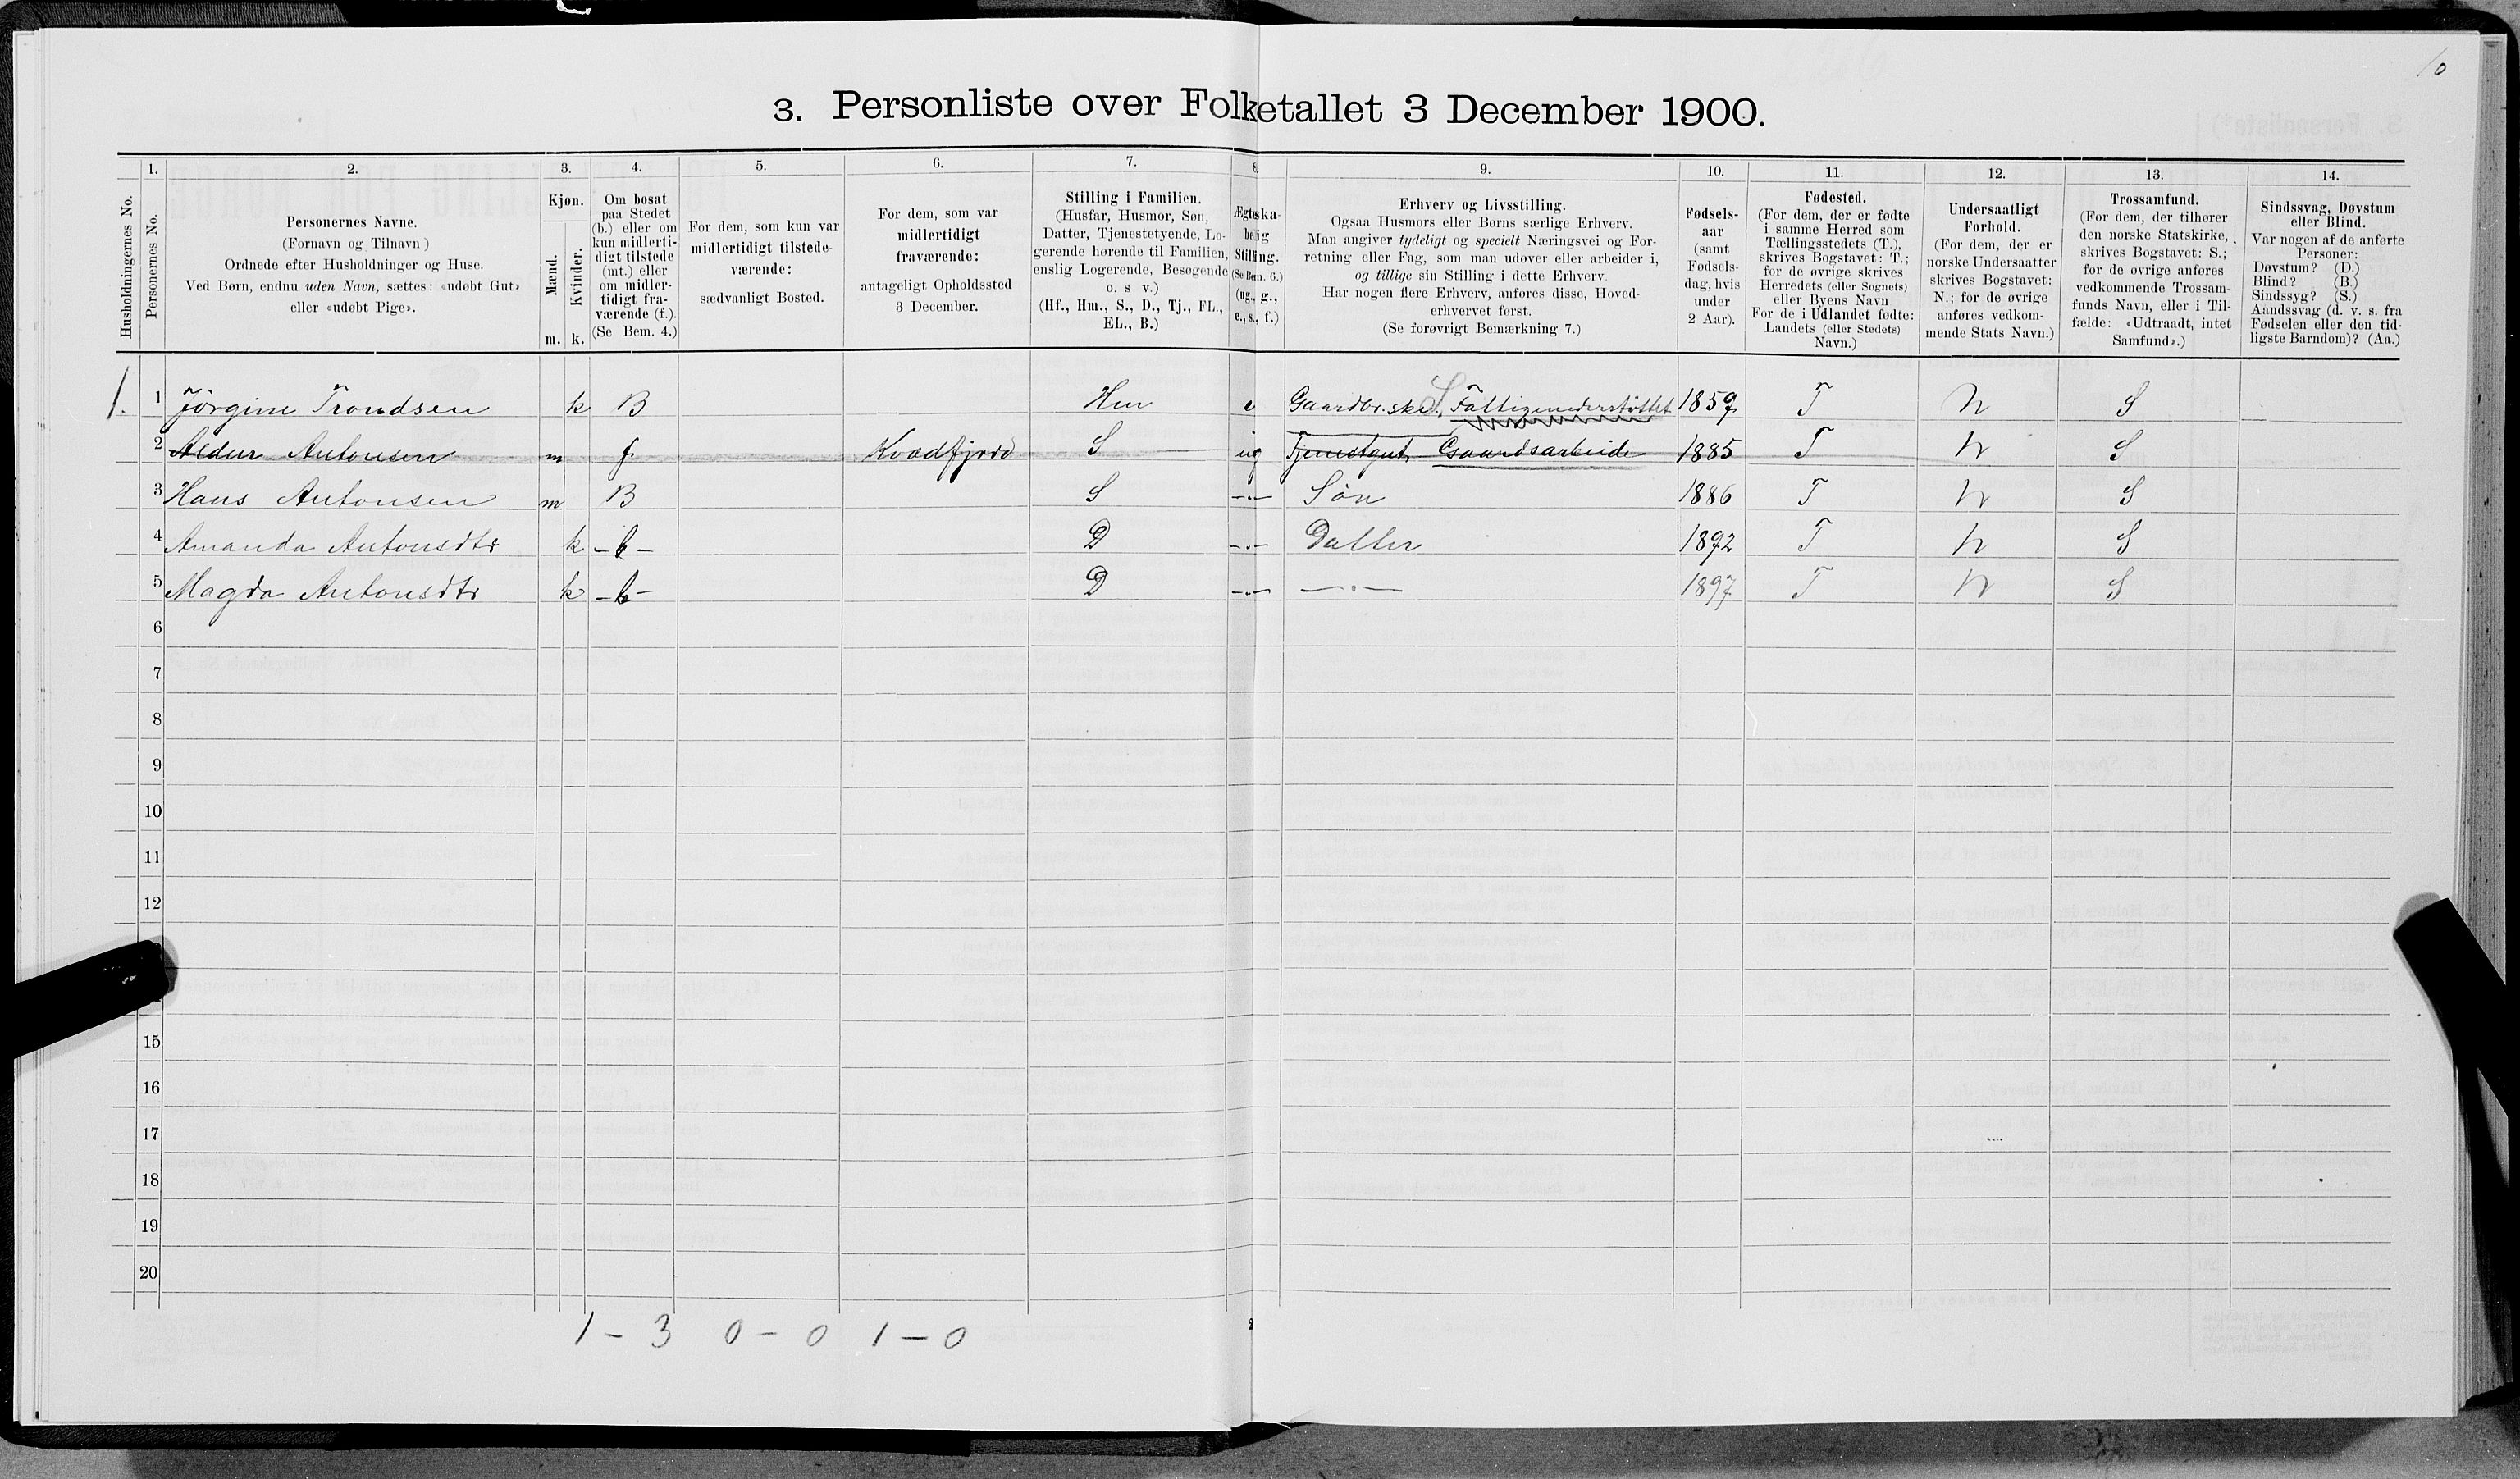 10
3. Personliste over Folketallet 3 December 1900.
1. 2. 3. 4. 5. 6. 7. 8. 9. 10. 11. 12. 13. 14.
Husholdningernes No.
Personernes No.
Personernes Navne.
(Fornavn og Tilnavn)
Ordnede efter Husholdninger og Huse.
Ved Børn, endnu uden Navn, sættes: «udøbt Gut»
eller «udøbt Pige».
Kjøn.
Mænd.
Kvinder.
m. k.
Om bosat
paa Stedet
(b.) eller om
kun midlerti-
digt tilstede
(mt.) eller
om midler-
tidigt fra-
værende (f.).
(Se Bem. 4.)
For dem, som kun var
midlertidigt tilstede-
værende:
sædvanligt Bosted.
For dem, som var
midlertidigt
fraværende:
antageligt Opholdssted
3 December.
Stilling i Familien.
(Husfar, Husmor, Søn,
Datter, Tjenestetyende, Lo-
gerende hørende til Familien,
enslig Logerende, Besøgende
o. s v.)
(Hf., Hm., S., D., Tj., FL.,
EL., B.)
Ægteska-
belig
Stilling.
(Se Bem. 6.)
(ug., g.,
e., s., f.)
Erhverv og Livsstilling.
Ogsaa Husmors eller Børns særlige Erhverv.
Man angiver tydeligt og specielt Næringsvei og For-
retning eller Fag, som man udøver eller arbeider i,
og tillige sin Stilling i dette Erhverv.
Har nogen flere Erhverv, anføres disse, Hoved-
erhvervet først.
(Se forøvrigt Bemærkning 7.)
Fødsels-
aar
(samt
Fødsels-
dag, hvis
under
2 Aar).
Fødested.
(For dem, der er fødte
i samme Herred som
Tællingsstedets (T.),
skrives Bogstavet: T.;
for de øvrige skrives
Herredets (eller Sognets)
eller Byens Navn
For de i Udlandet fødte:
Landets (eller Stedets)
Navn.)
Undersaatligt
Forhold.
(For dem, der er
norske Undersaatter
skrives Bogstavet:
N.; for de øvrige
anføres vedkom-
mende Stats Navn.)
Trossamfund.
(For dem, der tilhører
den norske Statskirke,
skrives Bogstavet: S.;
for de øvrige anføres
vedkommende Trossam-
funds Navn, eller i Til-
fælde: «Udtraadt, intet
Samfund».)
Sindssvag, Døvstum
eller Blind.
Var nogen af de anførte
Personer:
Døvstum? (D.)
Blind? (B.)
Sindssyg? (S.)
Aandssvag (d. v. s. fra
Fødselen eller den tid-
ligste Barndom)? (Aa.)
1. 1 Jörgine Trondsen k B Hm e Gaardbr.ske. S Fattigunderstöttet 1859 T N S
2 Antonsen m f Kvædfjord S ug Tjenestgut, Gaardsarbeide 1885 T N S
3 Hans Antonsen m B S -"- Sön 1886 T N S
4 Amanda Antonsdtr k - b - D -"- Datter 1892 T N S
5 Magda Antonsdtr k - b - D -"- -"- 1897 T N S
6
7
8
9
10
11
12
15
16
17
18
19
20
1 - 3 0 - 0 1 - 0
2